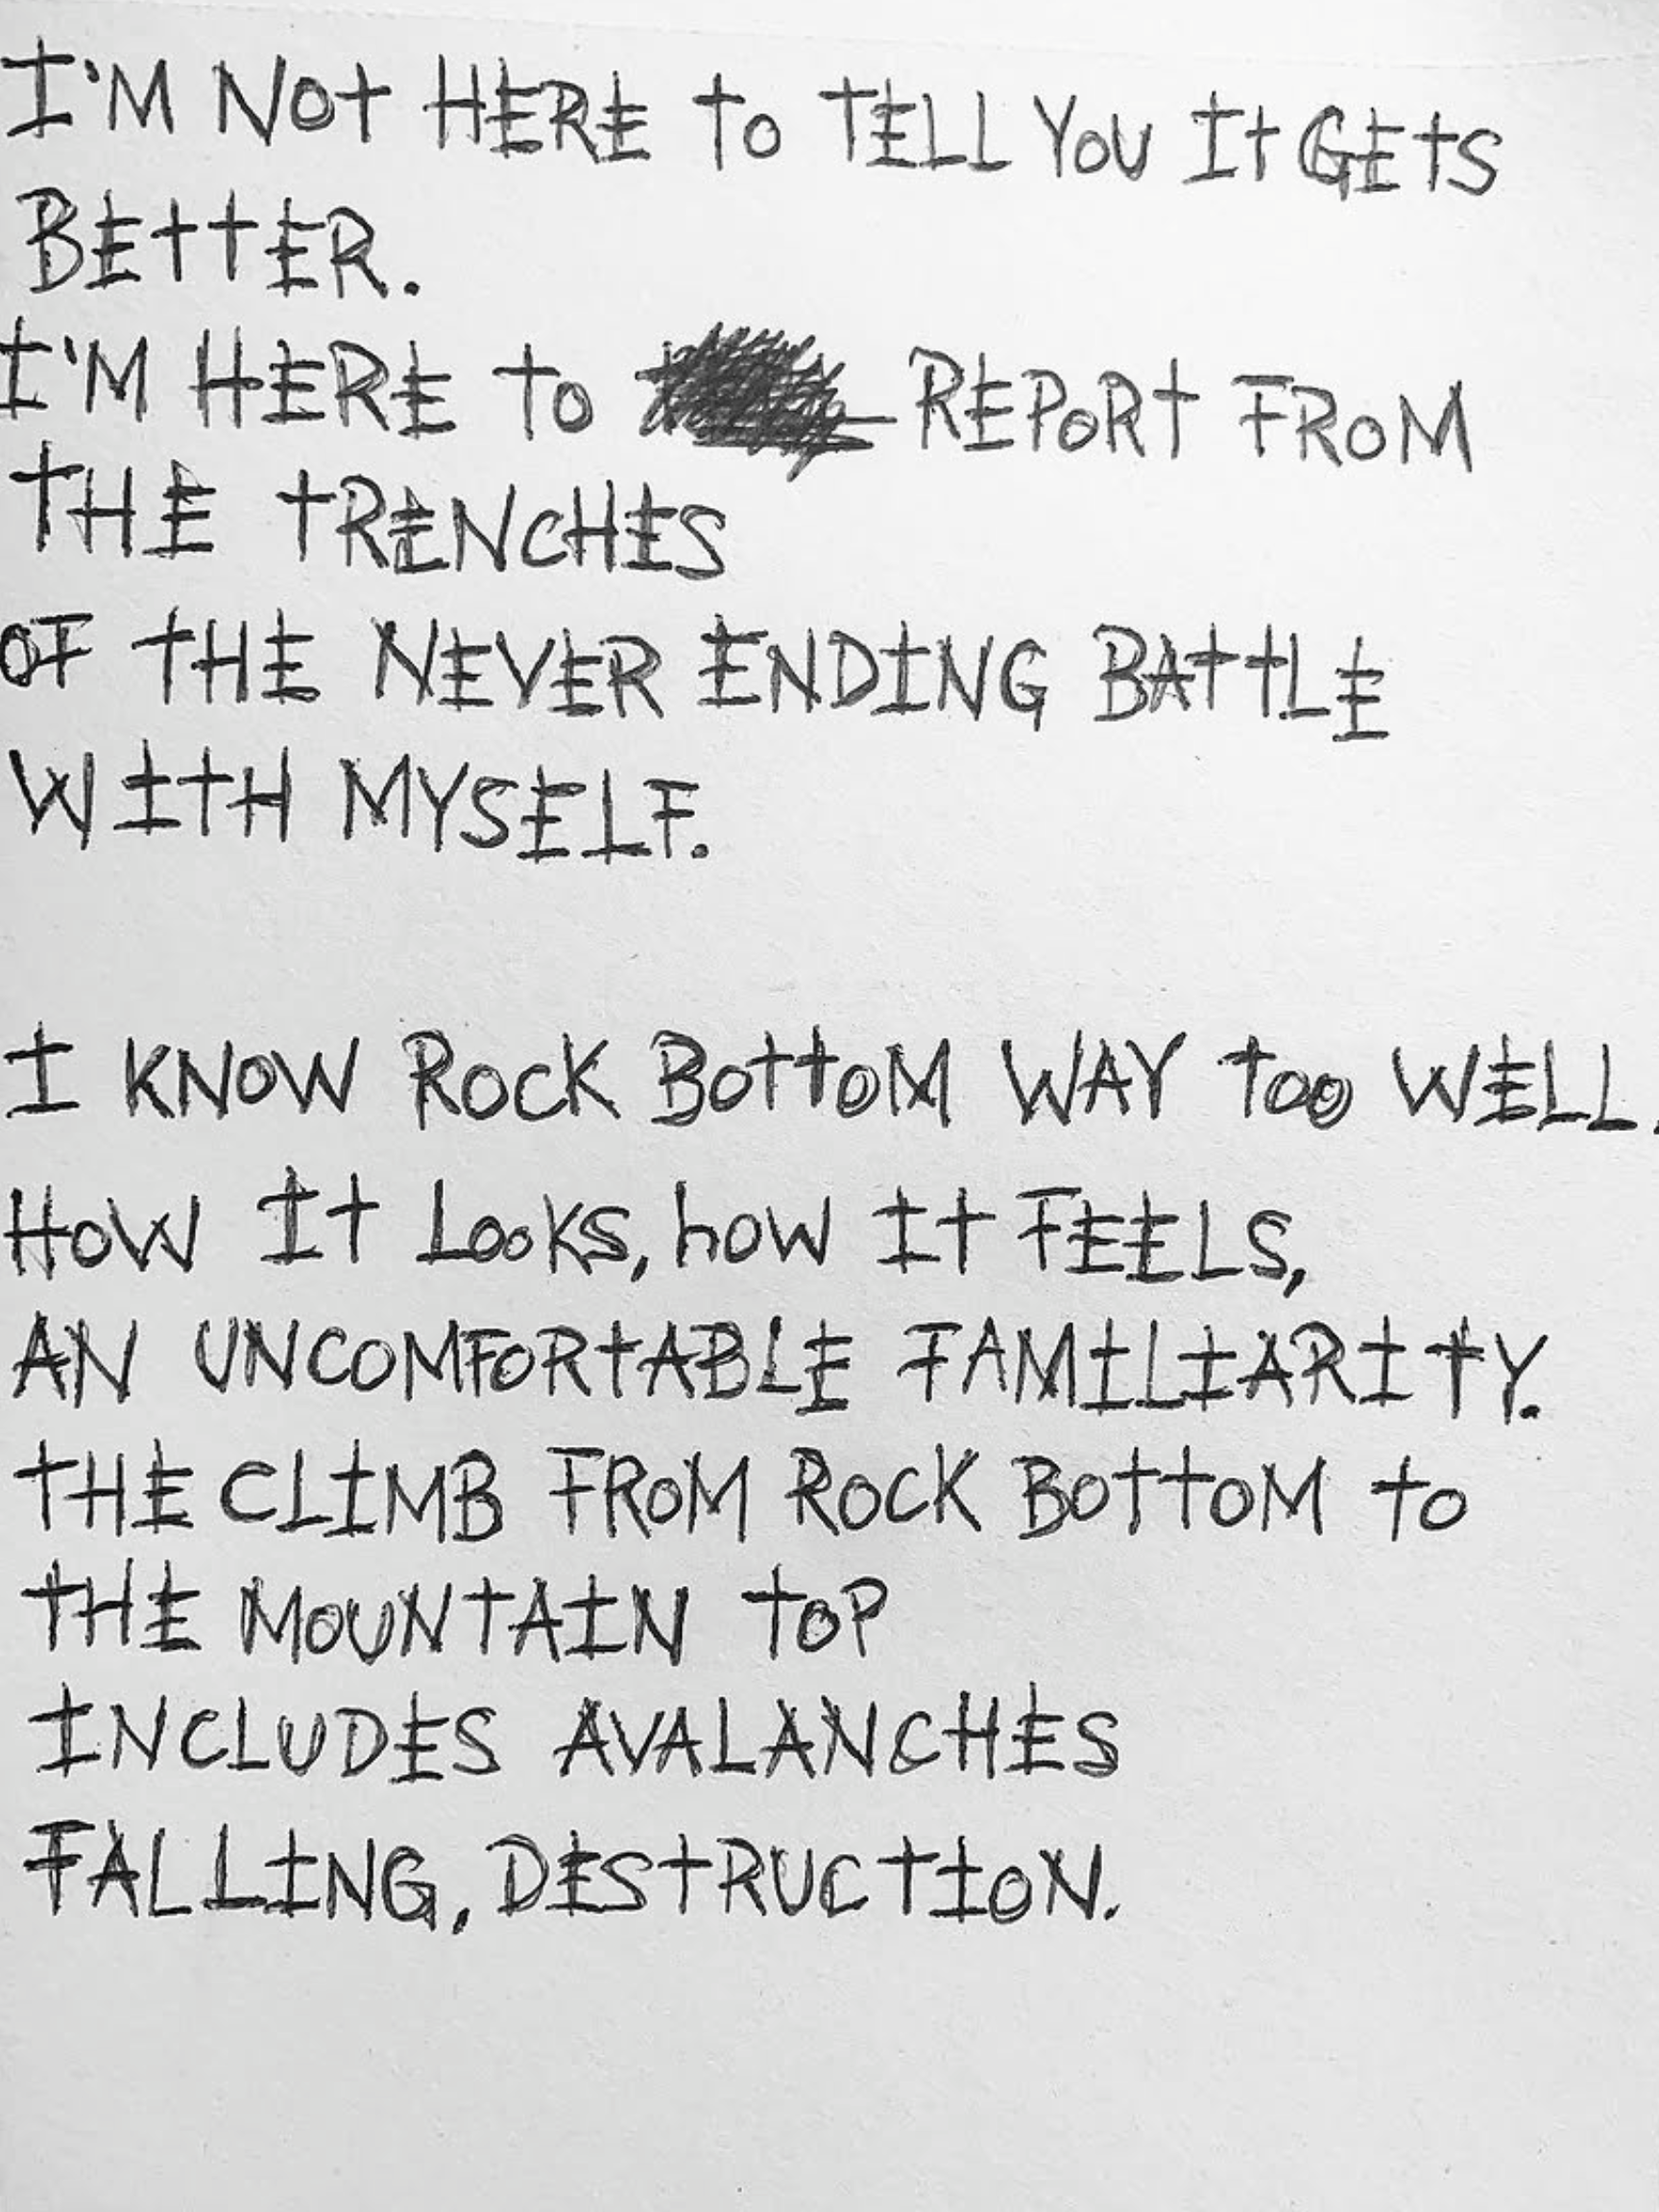 I'M NOT HERE TO TELL YOU IT GETS
BETTER.
I'M HERE TO REPORT FROM
THE TRENCHES
OF THE NEVER ENDING BATTLE
WITH MYSELF.
I KNOW ROCK BOTTOM WAY TOO WELL.
HOW IT LOOKS, how IT FEELS,
AN UNCOMFORTABLE FAMILIARITY.
THE CLIMB FROM ROCK BOTTOM TO
THE MOUNTAIN TOP
INCLUDES AVALANCHES
FALLING, DESTRUCTION.